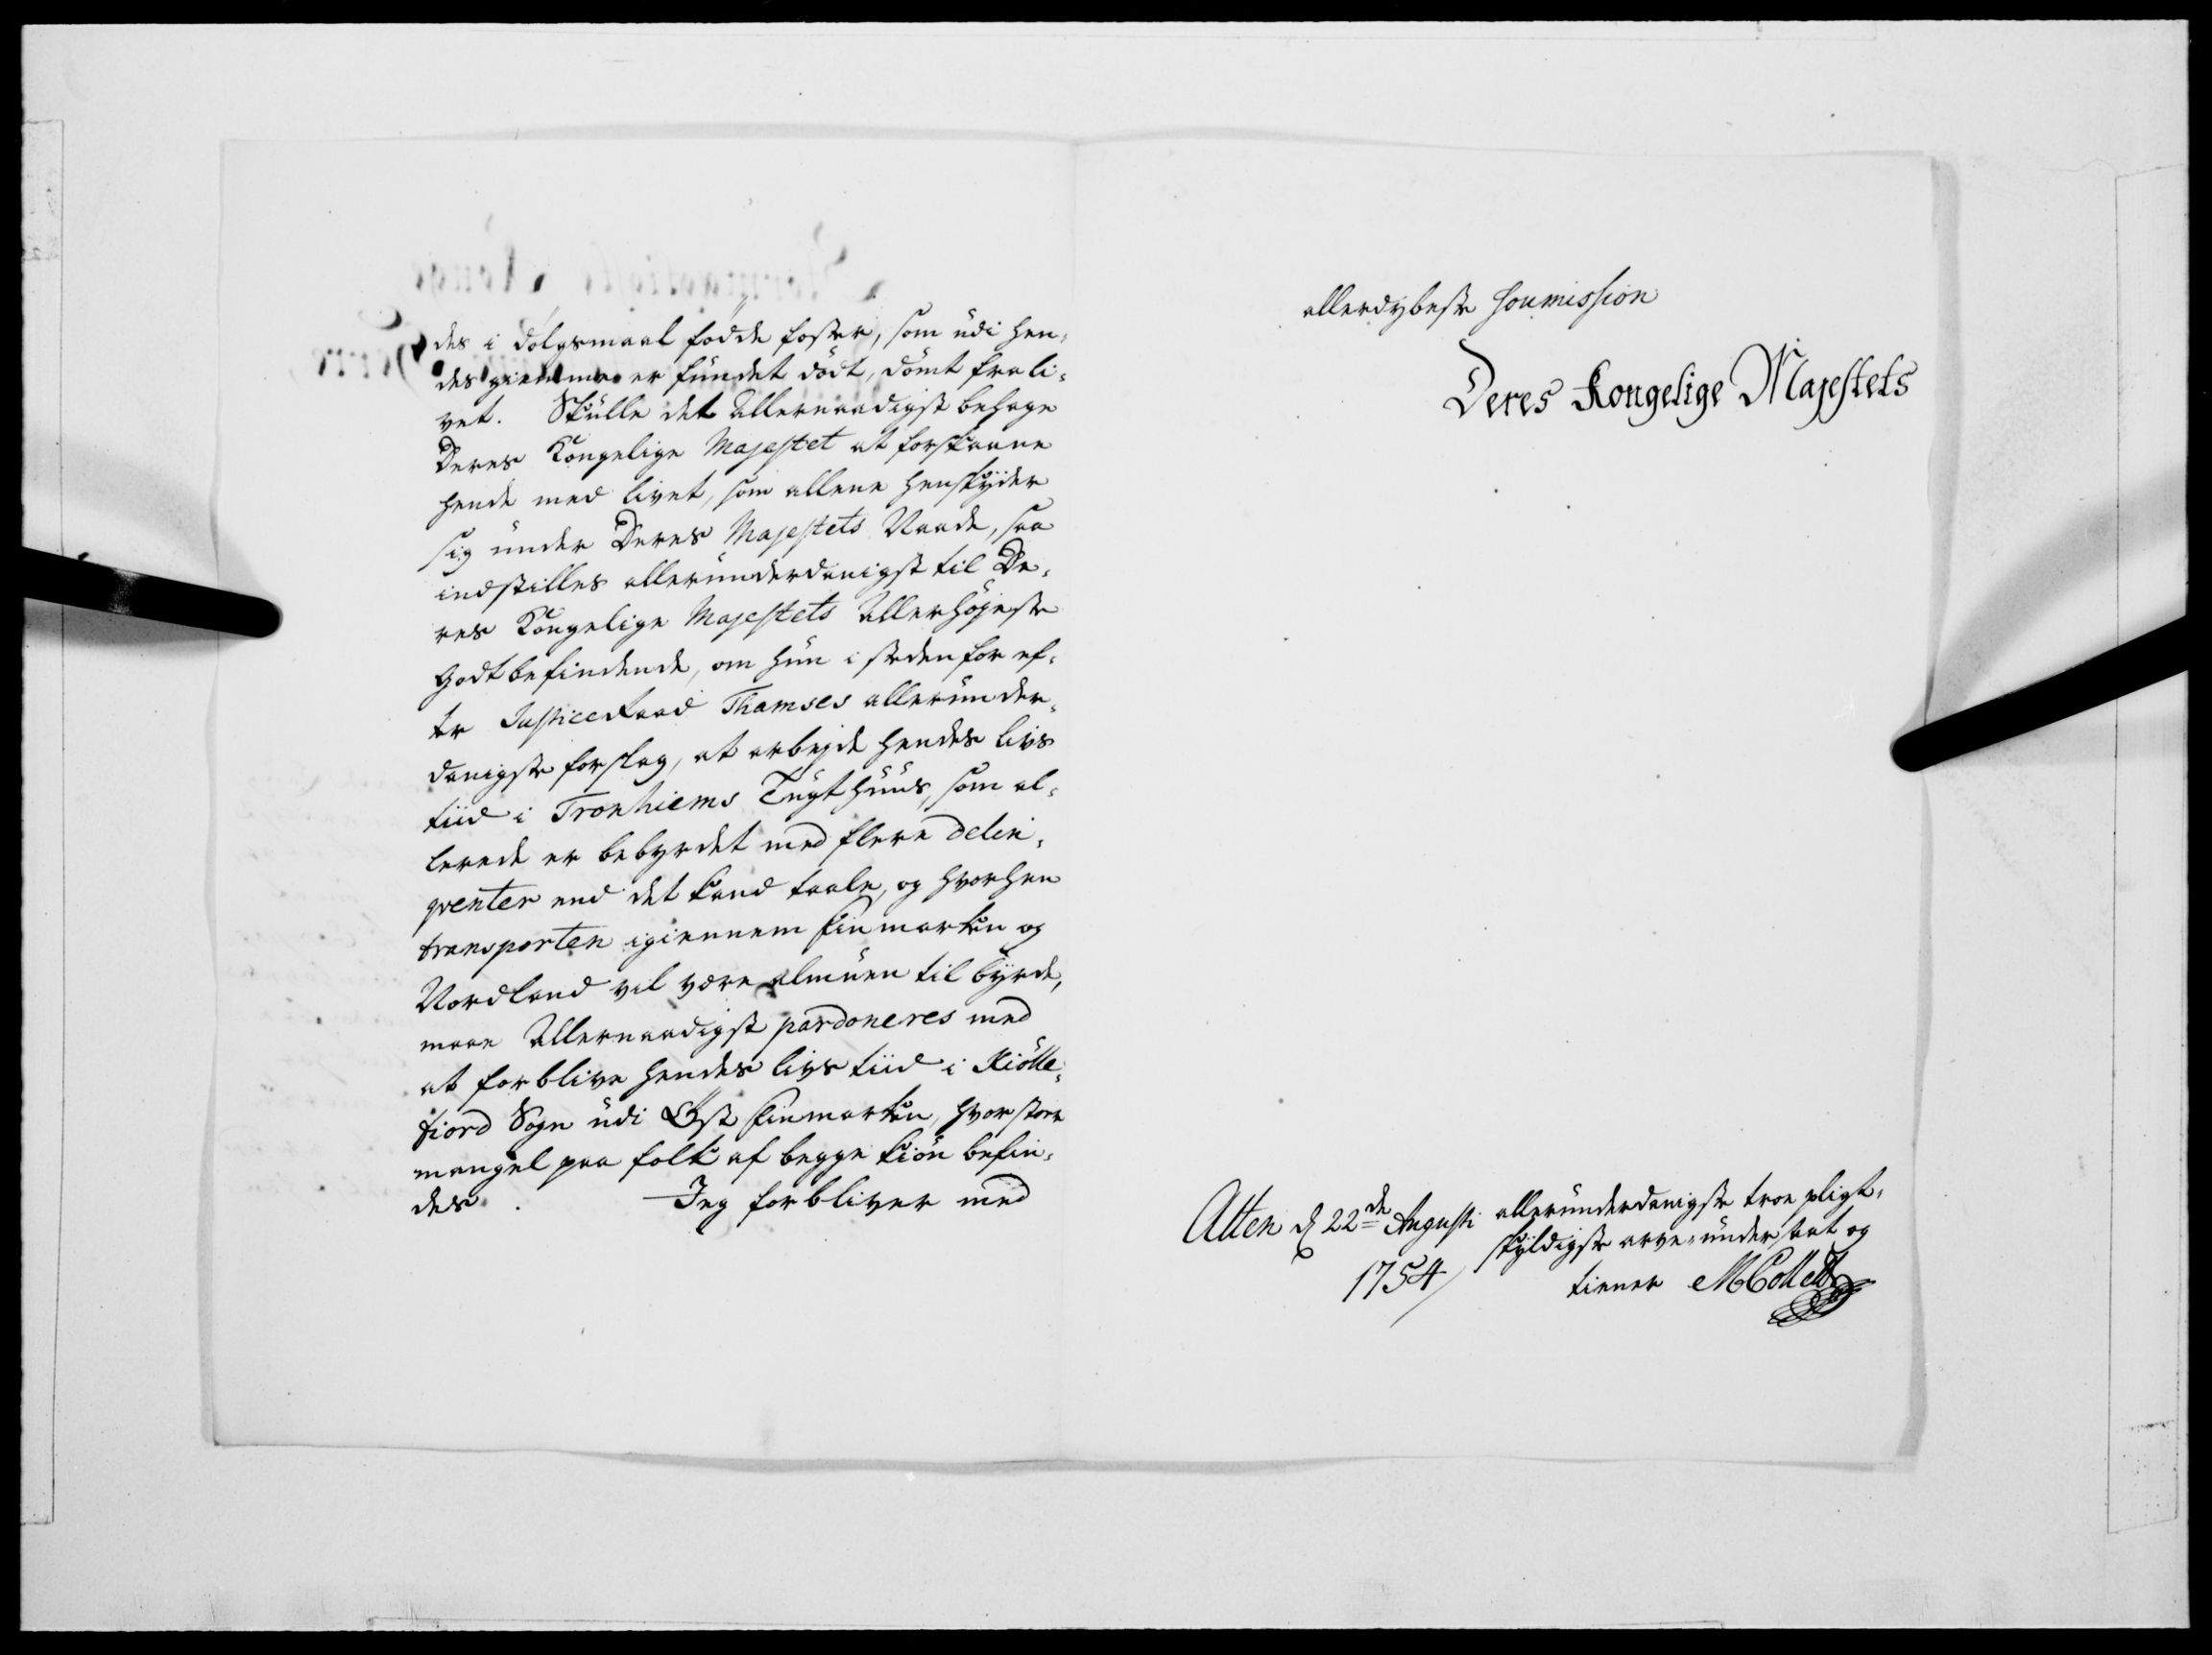 des i dølgsmaal fødde foster, som udi hen-
des giemme er fundet dødt, dømt fra li-
vet. Skulle det Allernaadigst behage
Deres Kongelige Majestet at forskaane
hende med livet, som allene henskyder
sig under Deres Majestets Naade, saa
indstilles allerunderdanigst til De-
res Kongelige Majestets Allerhøjeste
Godtbefindende, om hun i steden for ef-
ter Justice Raad Thamses allerunder-
danigste forslag, at arbejde hendes livs
tiid i Tronhiems Tugthuus, som al-
lerede er bebyrdet med flere delin-
qventer end det kand taale, og hvorhen
transporten igiennem Finmarken og
Nordland vil være almuen til byrde,
maae Allernaadigst pardoneres med
at forblive hendes livs tiid i Kiølle-
fiord Sogn udi Øst Finmarken, hvor stor
mangel paa folk af begge kiøn befin-
des. Jeg forbliver med
allerdybeste soumission
Deres Kongelige Majestets
allerunderdanigste troe pligt-
skyldigste arve-undersaat og
tiener MCollett
Alten d 22de Augusti
1754